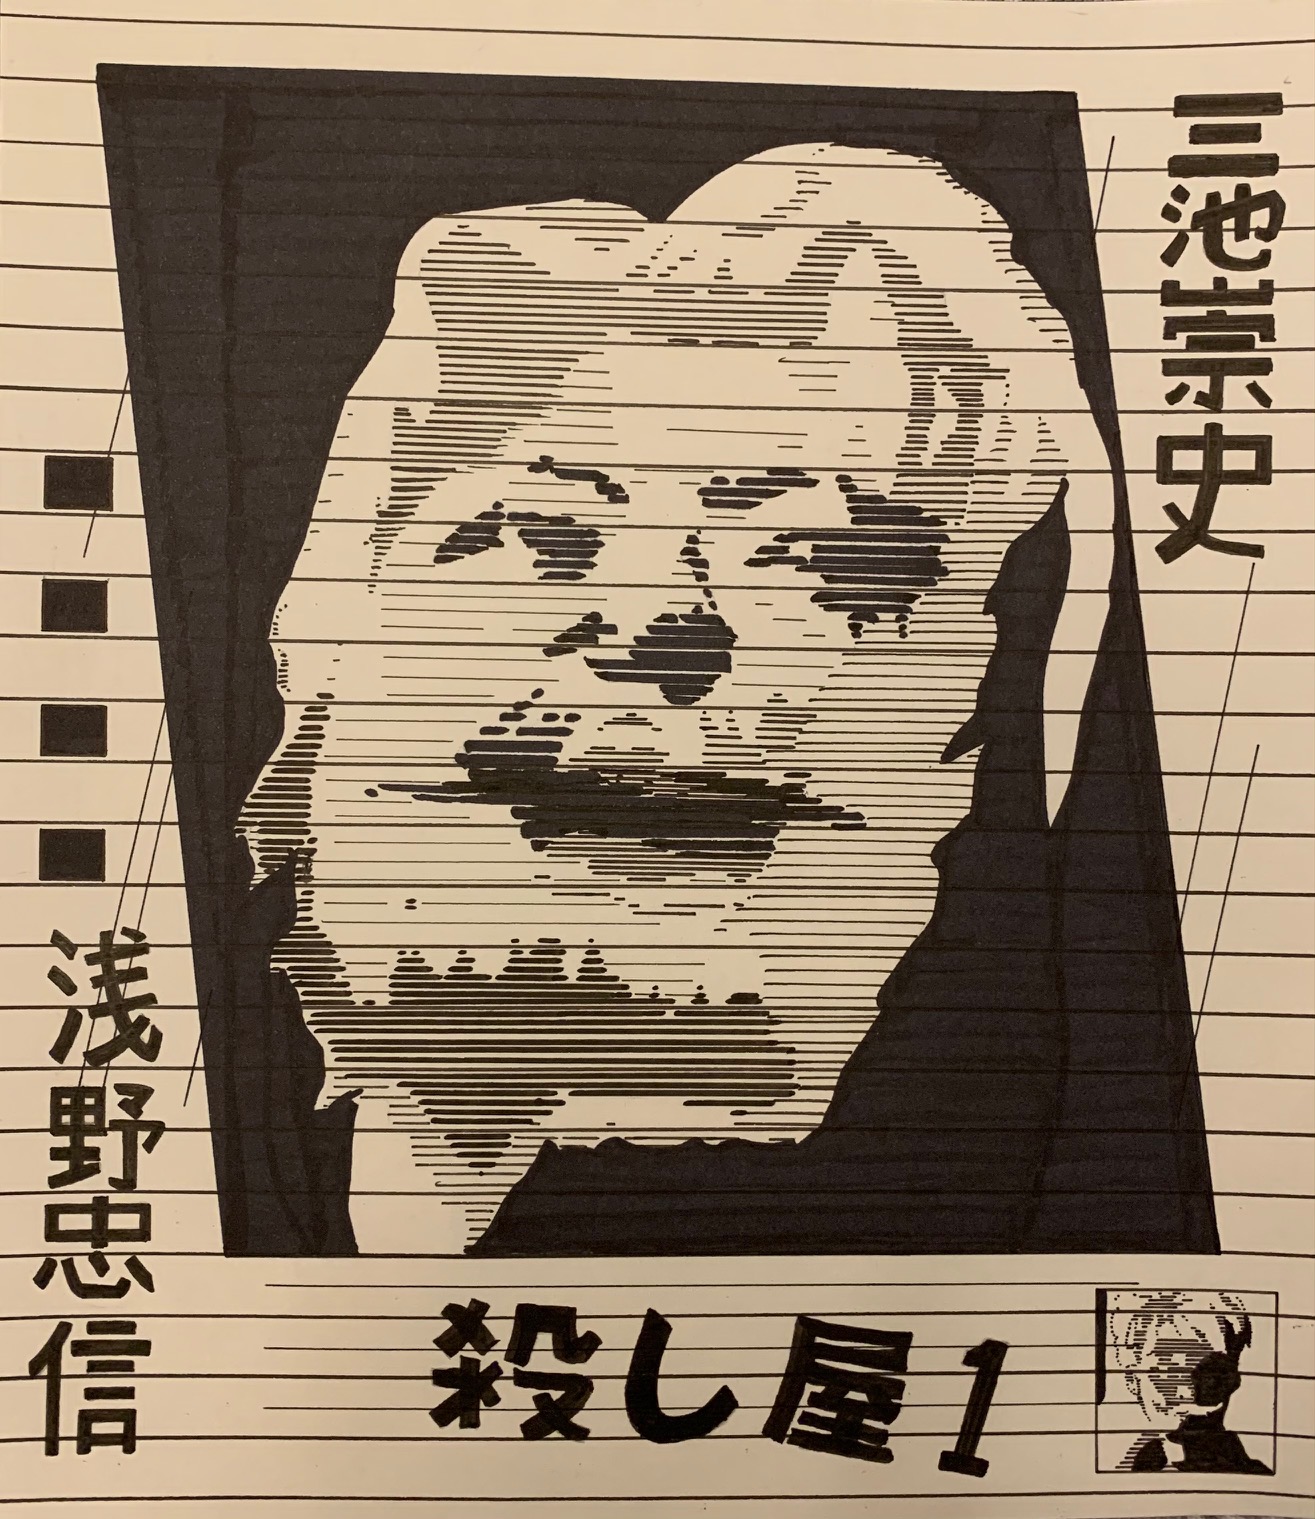 三池崇史
浅野忠信
殺し屋1